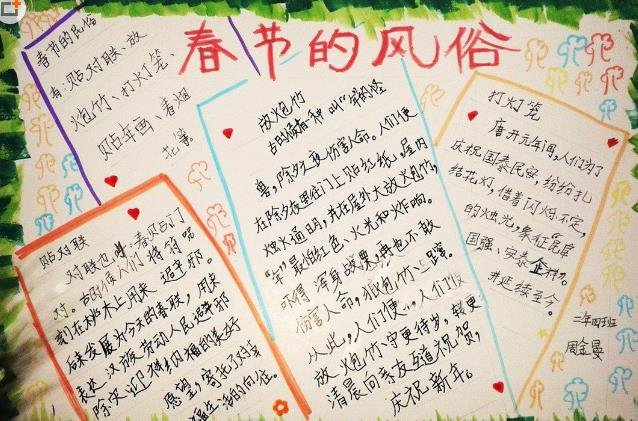 春节的风俗
春节的民俗
有:贴对联、放
炮竹、打灯笼、
贴年画、春烟
花等。
放炮竹
古时候有一种叫"年"的怪
兽,除夕之夜伤害人命。人们便
在除夕夜里往门上贴红纸,屋内
烛火通明,并在屋外大放炮竹,
"年"最怕红色、火光和炸响。
吓得浑身战栗,再也不敢
伤害人命,抵御
从此,人们便
放炮竹、守更待岁,
清晨向亲友互道祝贺,
庆祝新年。
打灯笼
唐开元年间,人们为了
庆祝国泰民安,纷纷扎
结花灯,借着闪烁不定,
的烛光,象征"民阜
国强、安泰
并延续至今。
二年四班
周金曼
贴对联
对联也叫春贴门
对。古时候人们将符呢
刻在桃木上用来避邪。
后来发展为今天的春联,用来
表达汉族劳动人民避邪
除灾、迎祥纳福的美好
愿望,寄托了对幸
福生活的向往。